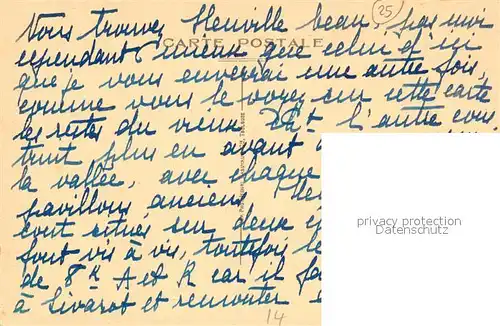 Vous trouvez Heuville beau, pas moi
25
CARTE POSTALE
cependant mieux que celui d'ici
que je vous enverrai une autre fois,
comme vous le voyez sur cette carte
les restes du vieux Cht l'autre cons
truit plus en avant
la vallée, avec chaque
pavillons anciens
sont situés sur deux
font vis à vis, toutefois le
de 8 K A et R car il fa
à Livarot et remonter
14
privacy protection
Datenschutz